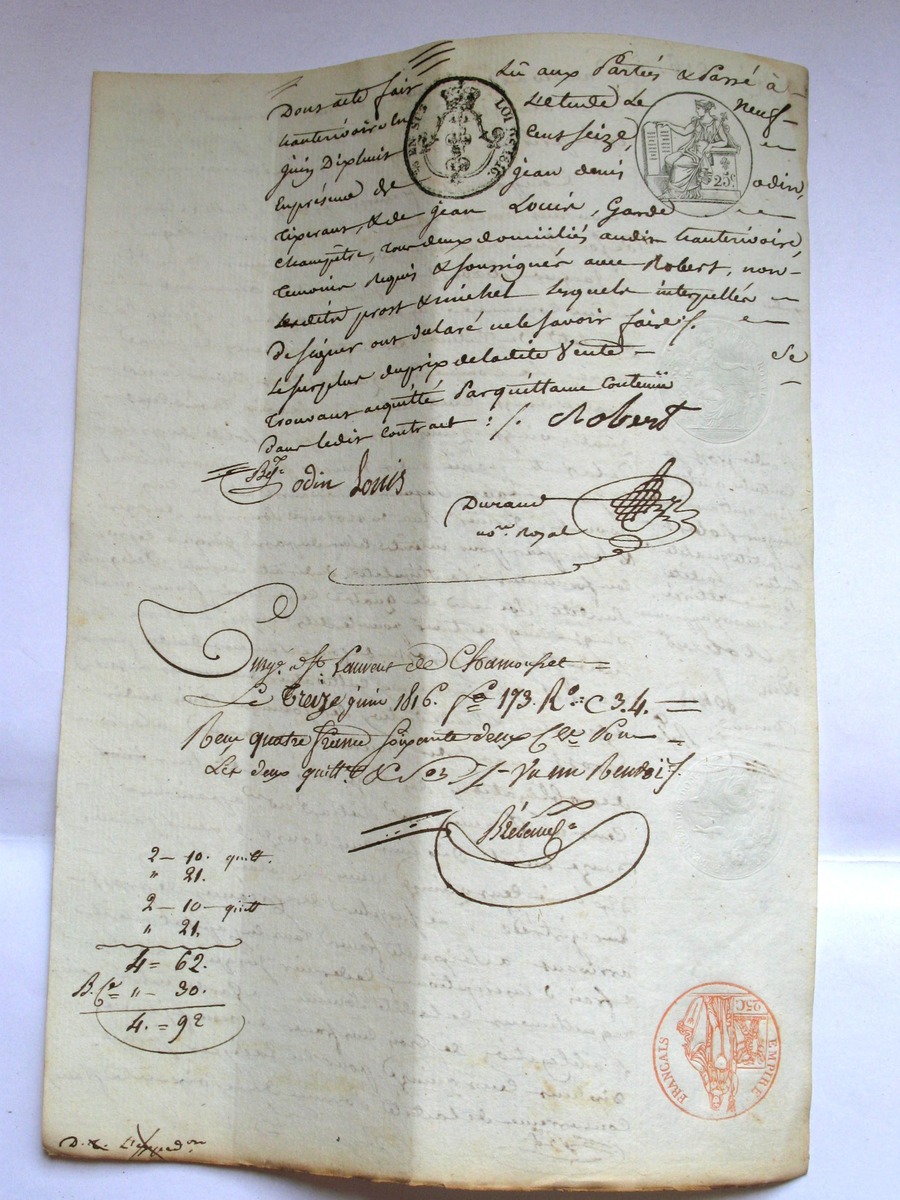 Dont acte fait Lû aux Parties & Passé à
hauterivoire en L'etude de neuf
juin Dixhuit cent seize,
En présence de jean denis odin,
Tixerant, & de jean Louis, Garde
champêtre, tous deux domiciliés audit hauterivoire,
Temoins Requis & soussignés avec Robert, non
Lesdits prost & michel Lesquels interpellés
De signer ont déclaré ne le savoir faire /.
Le surplus du prix de ladite Vente Se
Trouvant acquitté Par quittance contenue
dans ledit contrat : /. Robert
odin Louis
Durand
no.re Royal
Enreg.é à St. Laurent de Chamousset
Le Treize juin 1816. f.o 173. R.o C 3. 4.
Reçu quatre francs soixante deux C.es Pour
Les deux quitt.
2 - 10. quitt.
" 21.
2 - 10 - quitt
" 21.
4 = 62.
" - 30.
4. = 92
EN SUS LOI DE 1816
25 C.
EMPIRE FRANCAIS
25 C.